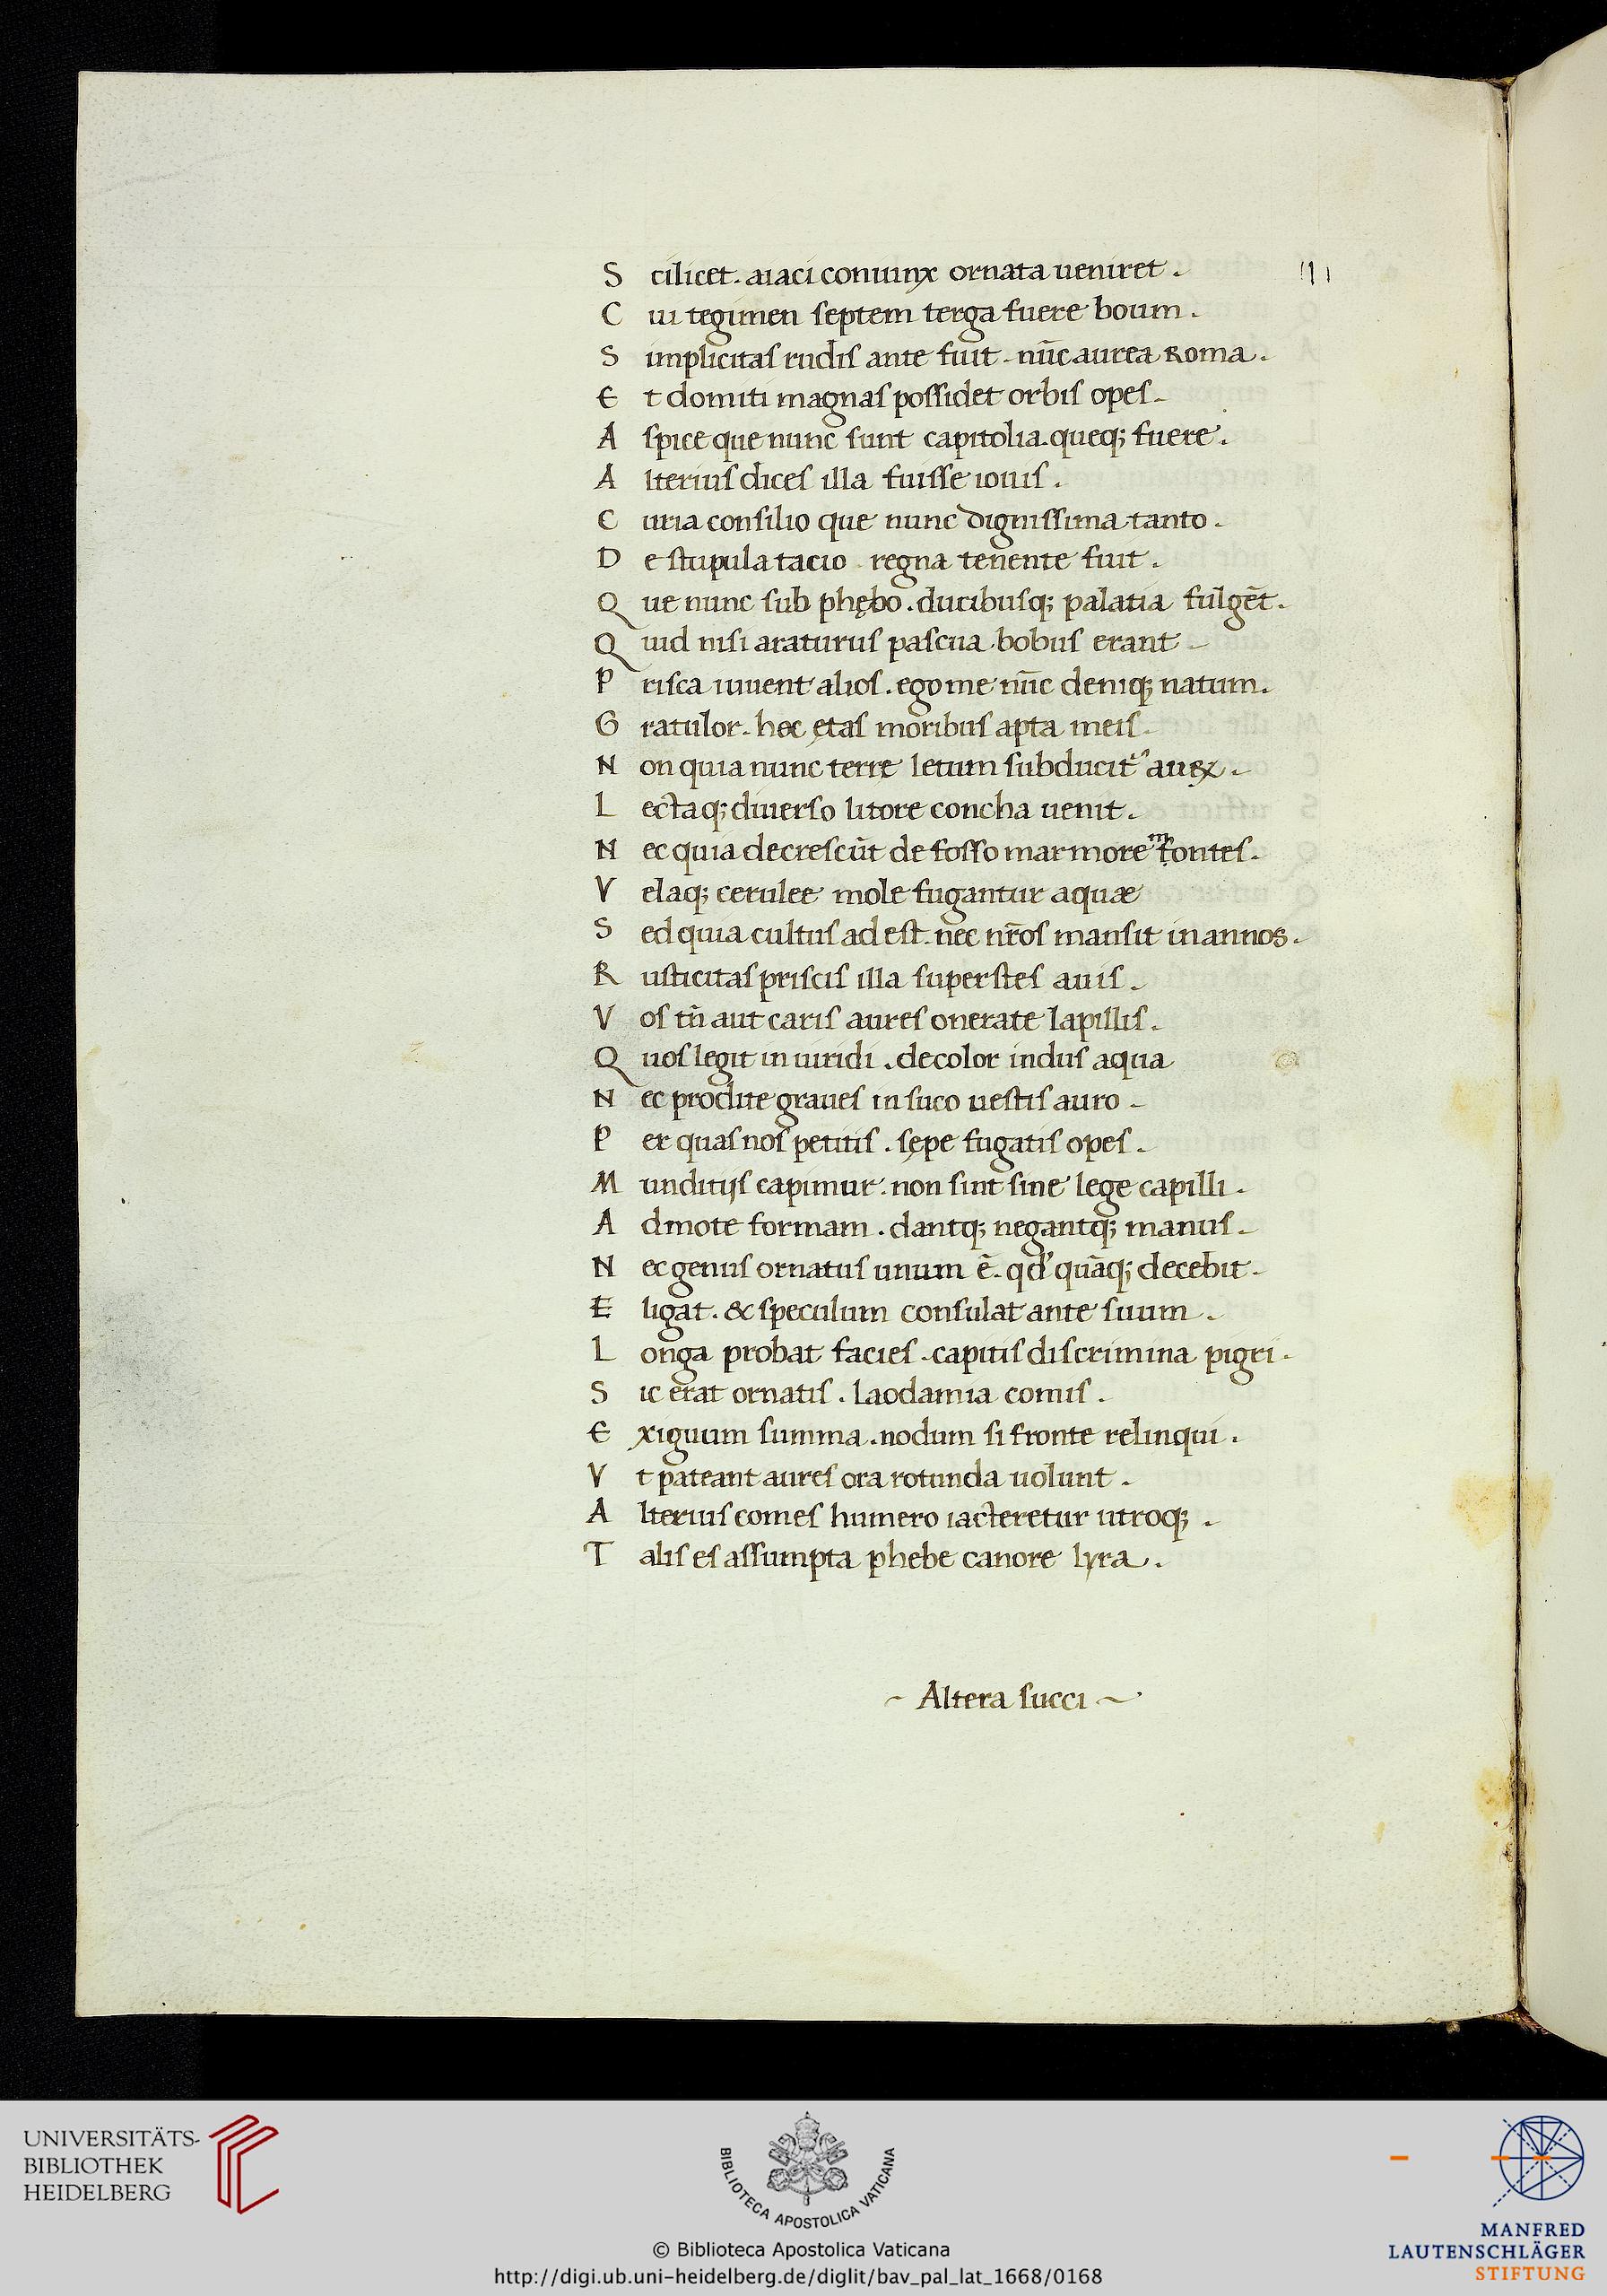 S cilicet. aiaci conuinx ornata ueniret.
C ui tegimen septem terga fuere boum.
S implicitas rudis ante fuit. nūc aurea Roma.
E t domiti magnas possidet orbis opes.
A spice que nunc sunt capitolia. queq; fuere.
A lterius dices illa fuisse iouis.
C uria consilio que nunc dignissima tanto.
D e stupula tacio regna tenente fuit.
Q ue nunc sub phębo. ducibusq; palatia fulgēt.
Q uid nisi araturus pascua bobus erant
P risca iuuent alios. ego me nūc deniq; natum.
G ratulor. hec ętas moribus apta meis.
N on quia nunc terre letum subducit᷑ aurꝝ.
L ectaq; diuerso litore concha uenit.
N ec quia decrescūt de fosso marmore m fontes.
V elaq; cerulee mole fugantur aquæ
S ed quia cultus adest. nec nr̄os mansit in annos.
R usticitas priscis illa superstes auis.
V os tn̄ aut caris aures onerate lapillis.
Q uos legit in uiridi. decolor indus aqua
N ec prodite graues in suco uestis auro.
P er quas nos petitis. sępe fugatis opes.
M unditijs capimur. non sint sine lege capilli.
A dmote formam. dantq; negantq; manus.
N ec genus ornatus unum ē. qd' quāq; decebit.
E ligat. & speculum consulat ante suum.
L onga probat facies. capitis discrimina pigri.
S ic erat ornatis. Laodamia comis.
E xiguum summa. nodum si fronte relinqui.
V t pateant aures ora rotunda uolunt.
A lterius comes humero iacteretur utroq;.
T alis es assumpta phebe canore lyra.
~ Altera succi ~
UNIVERSITÄTS-
BIBLIOTHEK
HEIDELBERG
BIBLIOTECA APOSTOLICA VATICANA
© Biblioteca Apostolica Vaticana
http://digi.ub.uni-heidelberg.de/diglit/bav_pal_lat_1668/0168
MANFRED
LAUTENSCHLÄGER
STIFTUNG